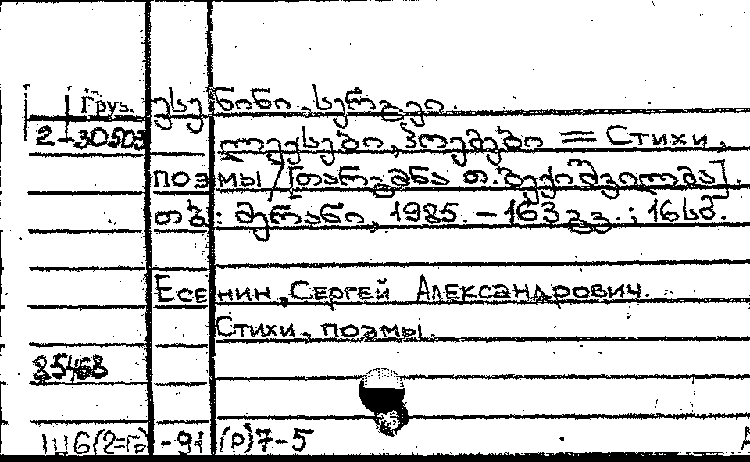 Груз. ესენინი, სერგეი.
2-30503 ლექსები, პოემები = Стихи,
поэмы / [თარგმნა თ. ბექიშვილმა].
თბ.: მერანი, 1985. – 163 გვ.; 16სმ.
Есенин, Сергей Александрович.
Стихи, поэмы.
85468
Ш6(2=Р)-91 (Р)7-5